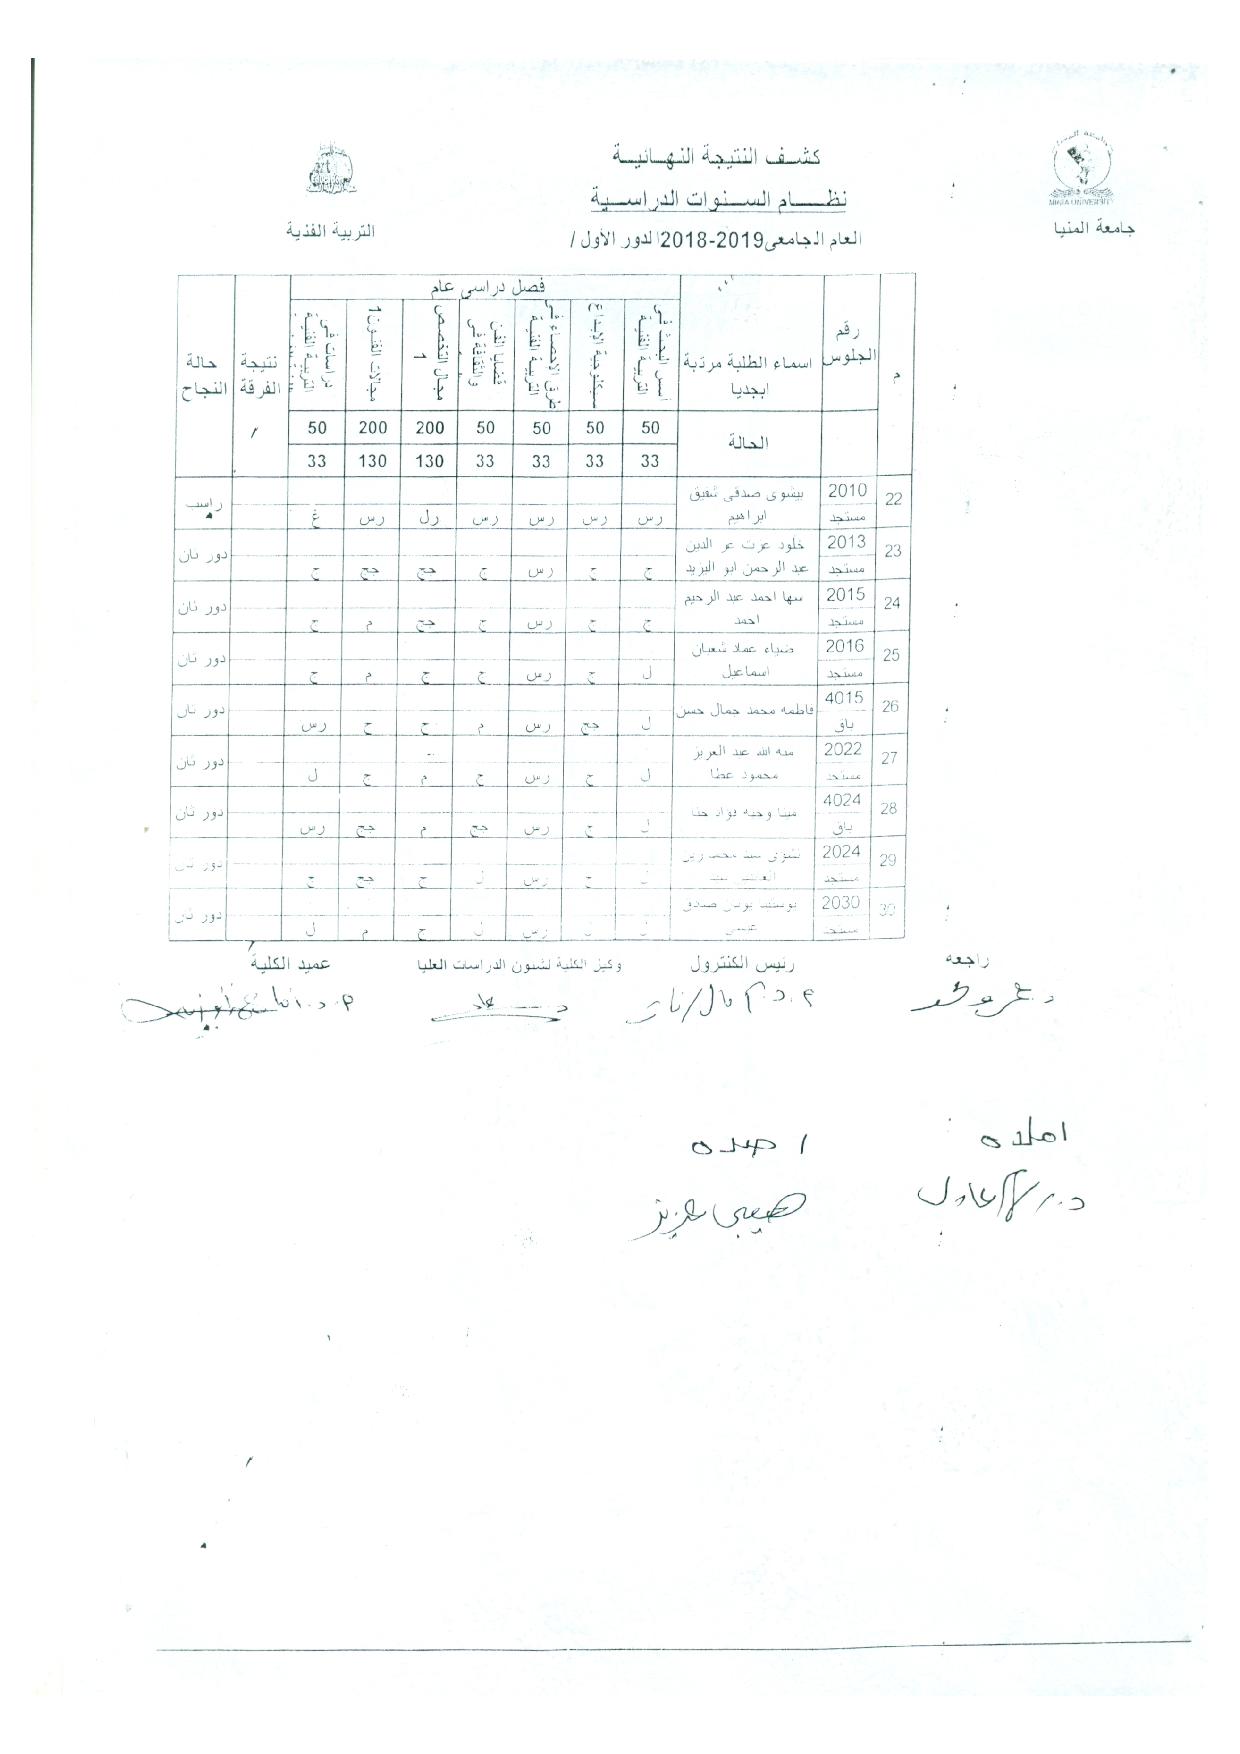 كشف النتيجة النهائية
نظام السنوات الدراسية
العام الجامعى 2019-2018 الدور الأول /
جامعة المنيا
MINIA UNIVERSITY
التربية الفنية
م
رقم الجلوس
اسماء الطلبة مرتبة ابجديا
فصل دراسي عام
أسس البحث في التربية الفنية
سيكلوجية الابداع
طرق الاحصاء في التربية الفنية
قضايا الفن والثقافة في
مجال التخصص 1
مجالات الفنون 1
دراسات في التربية الفنية
نتيجة الفرقة
حالة النجاح
الحالة
50 50 50 50 200 200 50
33 33 33 33 130 130 33
22 2010 بيشوى صدقى شفيق
مستجد ابراهيم رس رس رس رس رل رس غ راسب
23 2013 خلود عزت عز الدين
مستجد عبد الرحمن ابو اليزيد ج ج رس ج جج جج ج دور ثان
24 2015 سها احمد عبد الرحيم
مستجد احمد ج ج رس ج جج م ج دور ثان
25 2016 ضياء عماد شعبان
مستجد اسماعيل ل ج رس ج ج م ج دور ثان
26 4015 فاطمه محمد جمال حسن
باق ل جج رس م ج ج رس دور ثان
27 2022 منه الله عبد العزيز
مستجد محمود عطا ل ج رس ج م ج ل دور ثان
28 4024 مينا وجيه فؤاد حنا
باق ل ج رس جج م جج رس دور ثان
29 2024
مستجد ل ج رس ل ج جج ج دور ثان
30 2030
مستجد ل ل رس ل ج م ل دور ثان
راجعه
رئيس الكنترول
وكيل الكلية لشئون الدراسات العليا
عميد الكلية
املاه